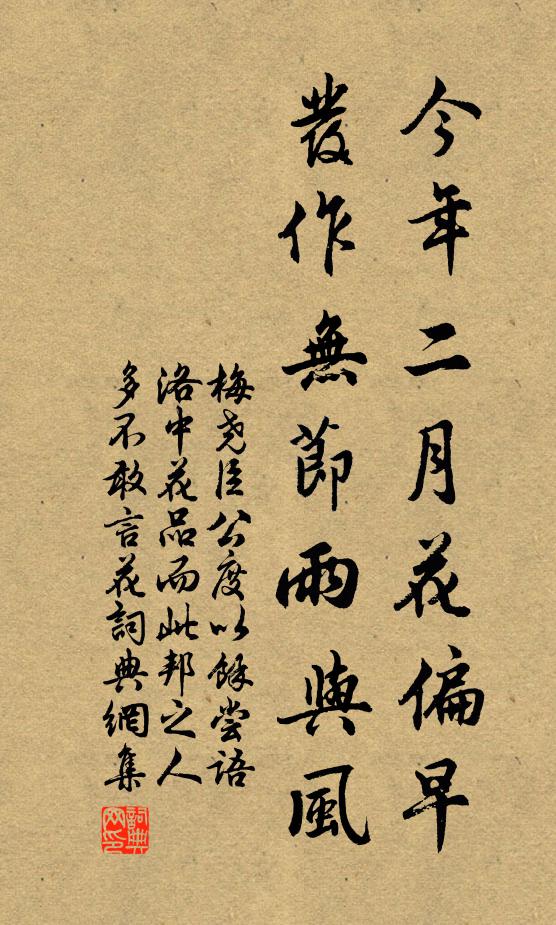 今年二月花偏早
發作無節雨與風
梅堯臣公度以餘嘗語
洛中花品而此邦之人
多不敢言花詞典網集
詞典
网印